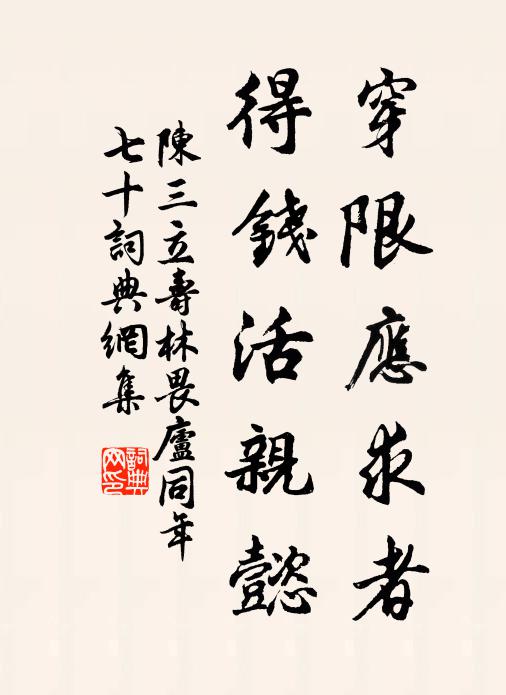 穿限應求者
得錢活親懿
陳三立壽林畏廬同年
七十詞典網集
詞典網印